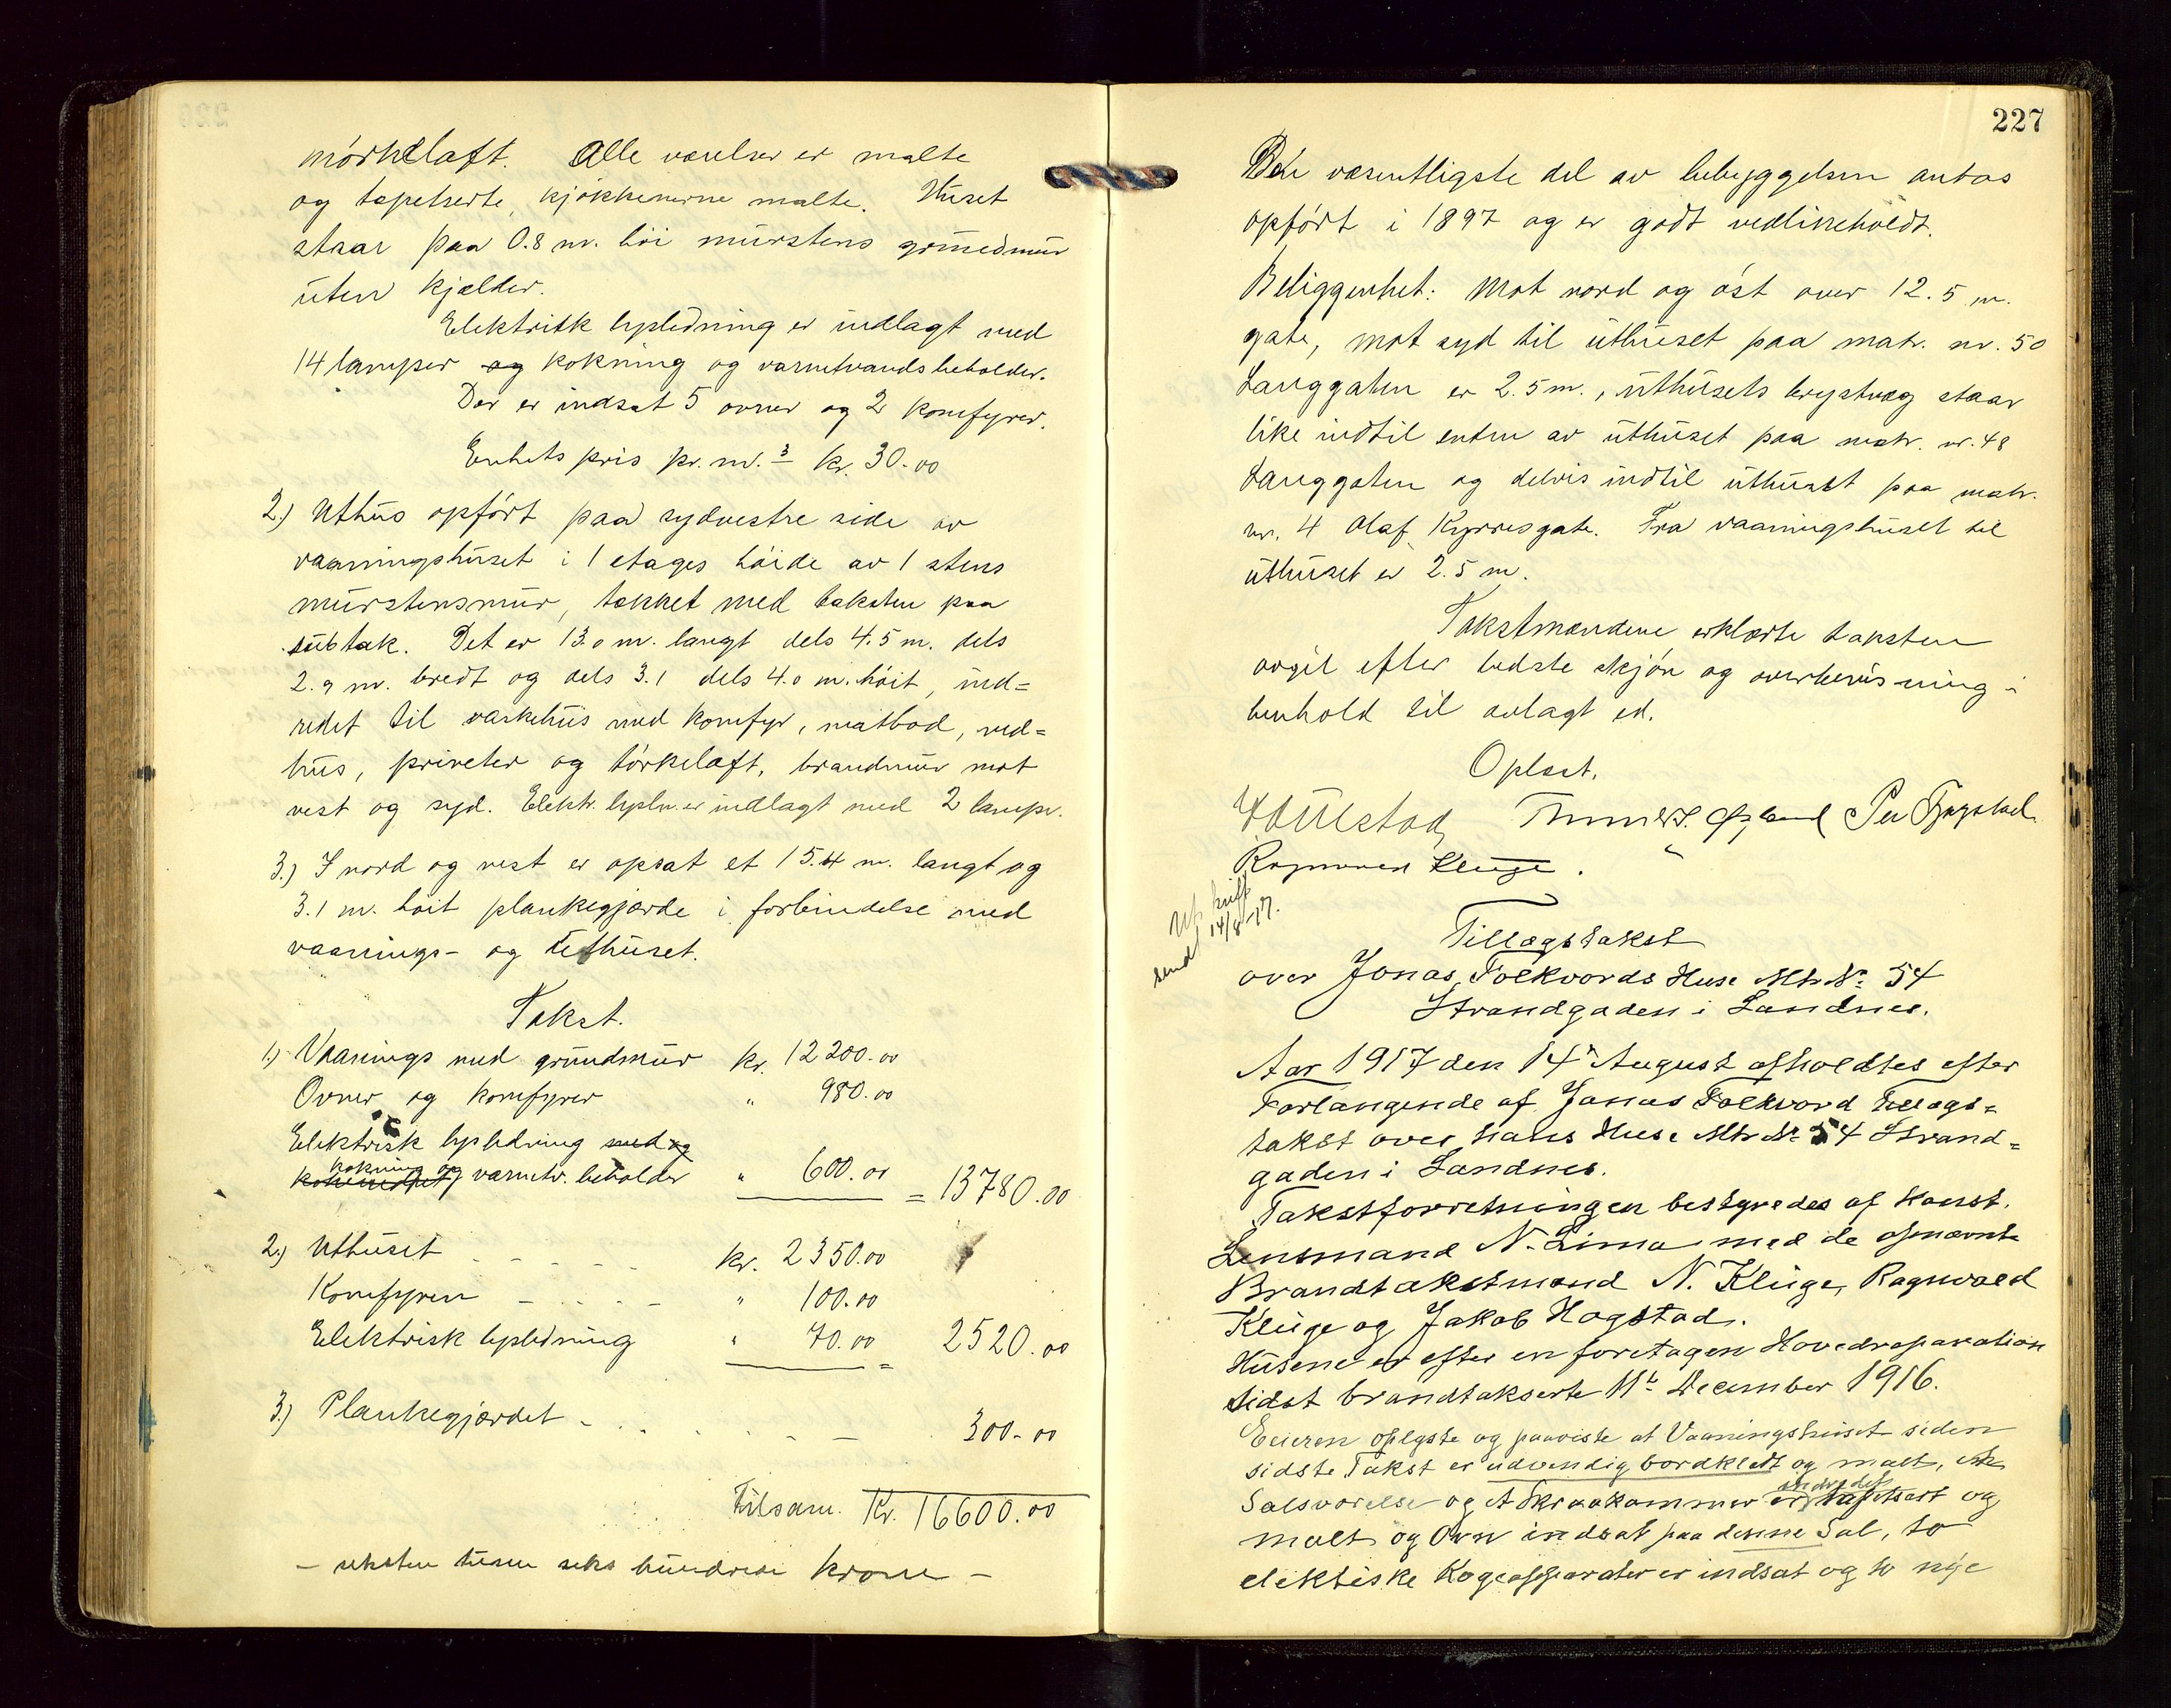 mørkeloft. Alle værelser er malte
og tapetserte, kjøkkenerne malte. Huset
staar paa 0.8 m. høi murstens grundmur
uten kjælder.
Elektrisk lysledning er indlagt med
14 lamper og kokning og varmtvandsbeholder.
Der er indsat 5 ovner og 2 komfyrer.
Enhetspris pr. m.3 kr. 30.00
2.) Uthus opført paa sydvestre side av
vaaningshuset i 1 etages høide av 1 stens
murstensmur, tækket med taksten paa
sutak. Det er 13.0 m. langt dels 4.5 m. dels
2.9 m. bredt og dels 3.1 dels 4.0 m. høit, ind=
redet til vaskehus med komfyr, matbod, ved=
hus, priveter og tørkeloft, brandmur mot
vest og syd. Elektr. lysln. er indlagt med 2 lamper.
3.) I nord og vest er opsat et 15.4 m. langt og
3.1 m. høit plankegjærde i forbindelse med
vaanings- og uthuset.
Takst.
1.) Vaanings med grundmur kr. 12200.00
Ovner og komfyrer " 980.00
Elektrisk lysledning med og
kokning og varmtv. beholder " 600.00 = 13780.00
2.) Uthuset kr. 2350.00
Komfyren " 100.00
Elektrisk lysledning " 70.00 = 2520.00
3.) Plankegjærdet 300.00
Tilsam. Kr. 16600.00
- seksten tusen seks hundrede kroner -
227
Den væsentligste del av bebyggelsen antas
opført i 1897 og er godt vedlikeholdt.
Beliggenhet: Mot nord og øst over 12.5 m.
gate, mot syd til uthuset paa matr. nr. 50
Langgaten er 2.5 m., uthusets brystvæg staar
like indtil enden av uthuset paa matr. nr. 48
Langgaten og delvis indtil uthuset paa matr.
nr. 4 Olaf Kyrresgate. Fra vaaningshuset til
uthuset er 2.5 m.
Takstmændene erklærte taksten
avgit efter bedste skjøn og overbevisning i
henhold til avlagt ed.
Oplæst.
Ragnvald Kluge.
Utskrift
sendt 14/8-17.
Tillægstakst
over Jonas Folkvords Huse Mtr № 54
Strandgaden i Sandnes.
Aar 1917 den 14 August afholdtes efter
Forlangende af Jonas Folkvord Tillægs=
takst over hans Huse Mtr № 54 Strand=
gaden i Sandnes.
Takstforretningen bestyredes af Konst.
Lensmand N. Lima med de opnævnte
Brandtakstmænd N. Kluge, Ragnvald
Kluge og Jakob Hagstad.
Husene er efter en foretagen Hovedreparation
sidst brandtakserte 11t December 1916.
Eieren oplyste og paaviste at Vaaningshuset siden
sidste Takst er udvendig bordklædt og malt, ette
Salsværelse og et Skraakammer er indredet tapetsert og
malt og Ovn indsat paa denne Sal, to
elektiske Kogeapparater er indsat og to nye